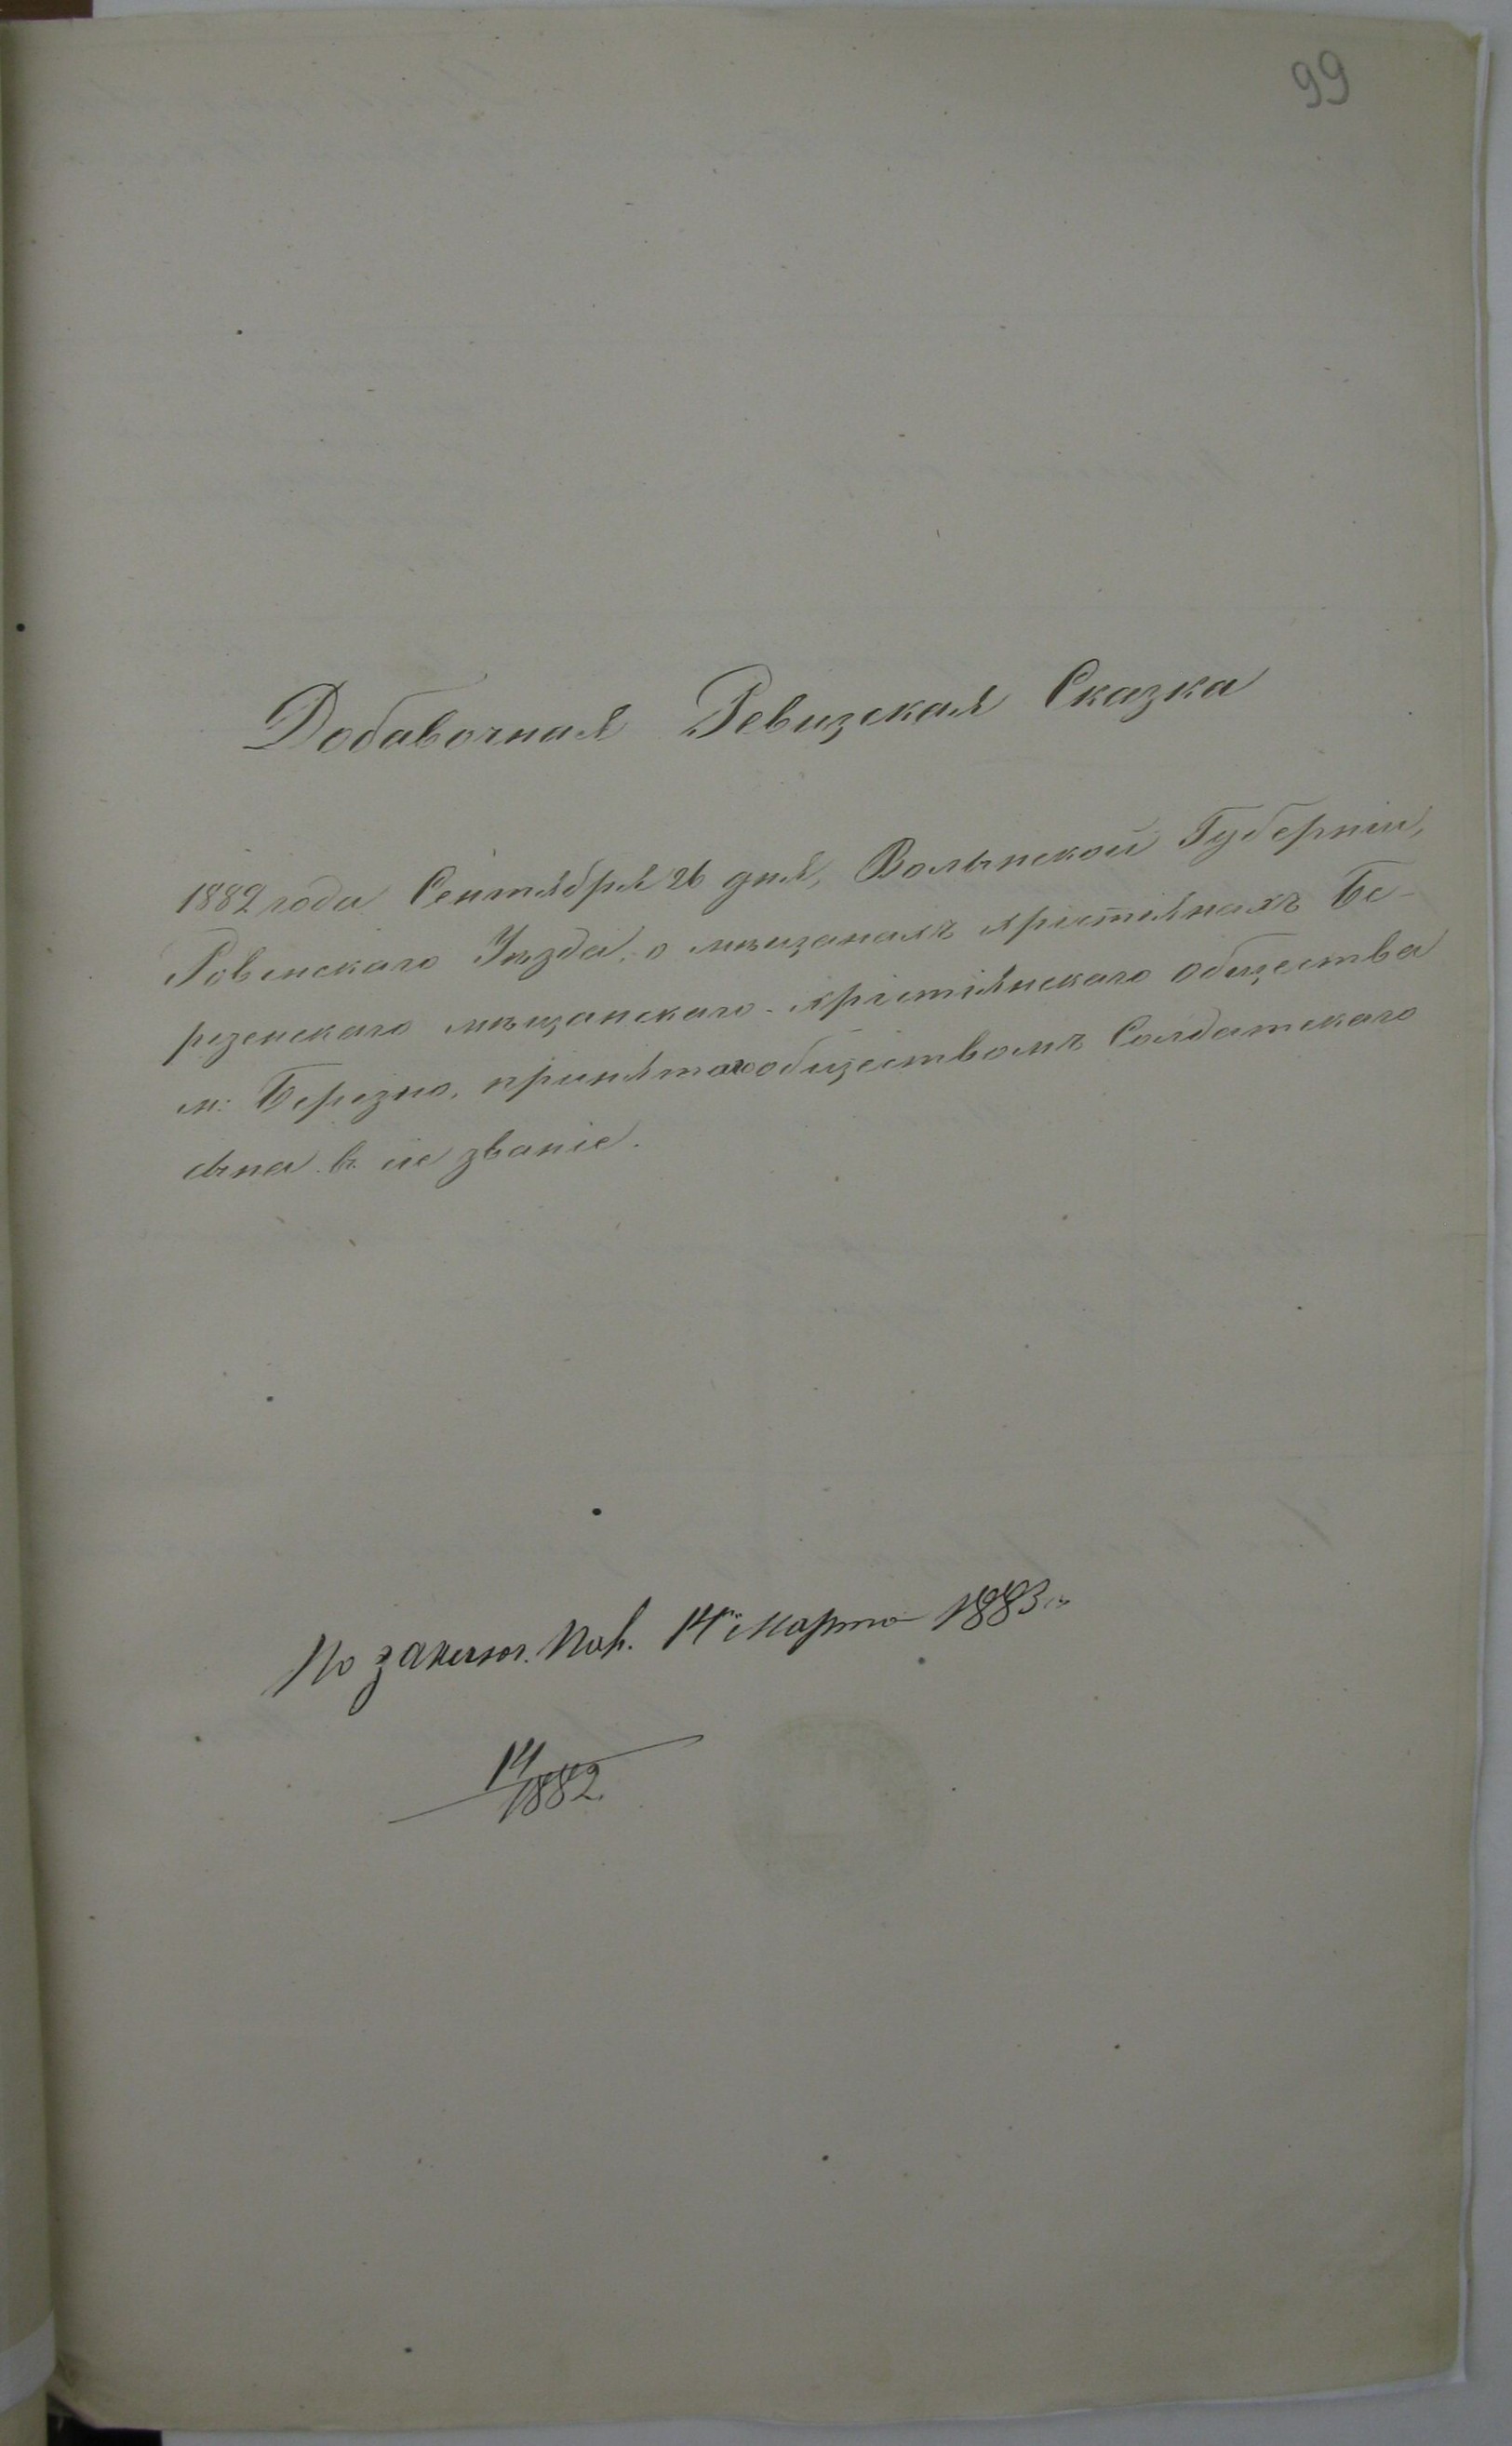 99
Добавочная Ревизская Сказка
1882 года Сентября 26 дня, Волынской Губерніи,
Ровенскаго Уѣзда, о мѣщанахъ христіянахъ Бе-
резенскаго мѣщанскаго-христіянскаго общества
м: Березно, принятаго обществомъ Солдатскаго
сына въ сіе званіе.
По заключ. Пав. 14го Марта 1883 г.
14/1882.